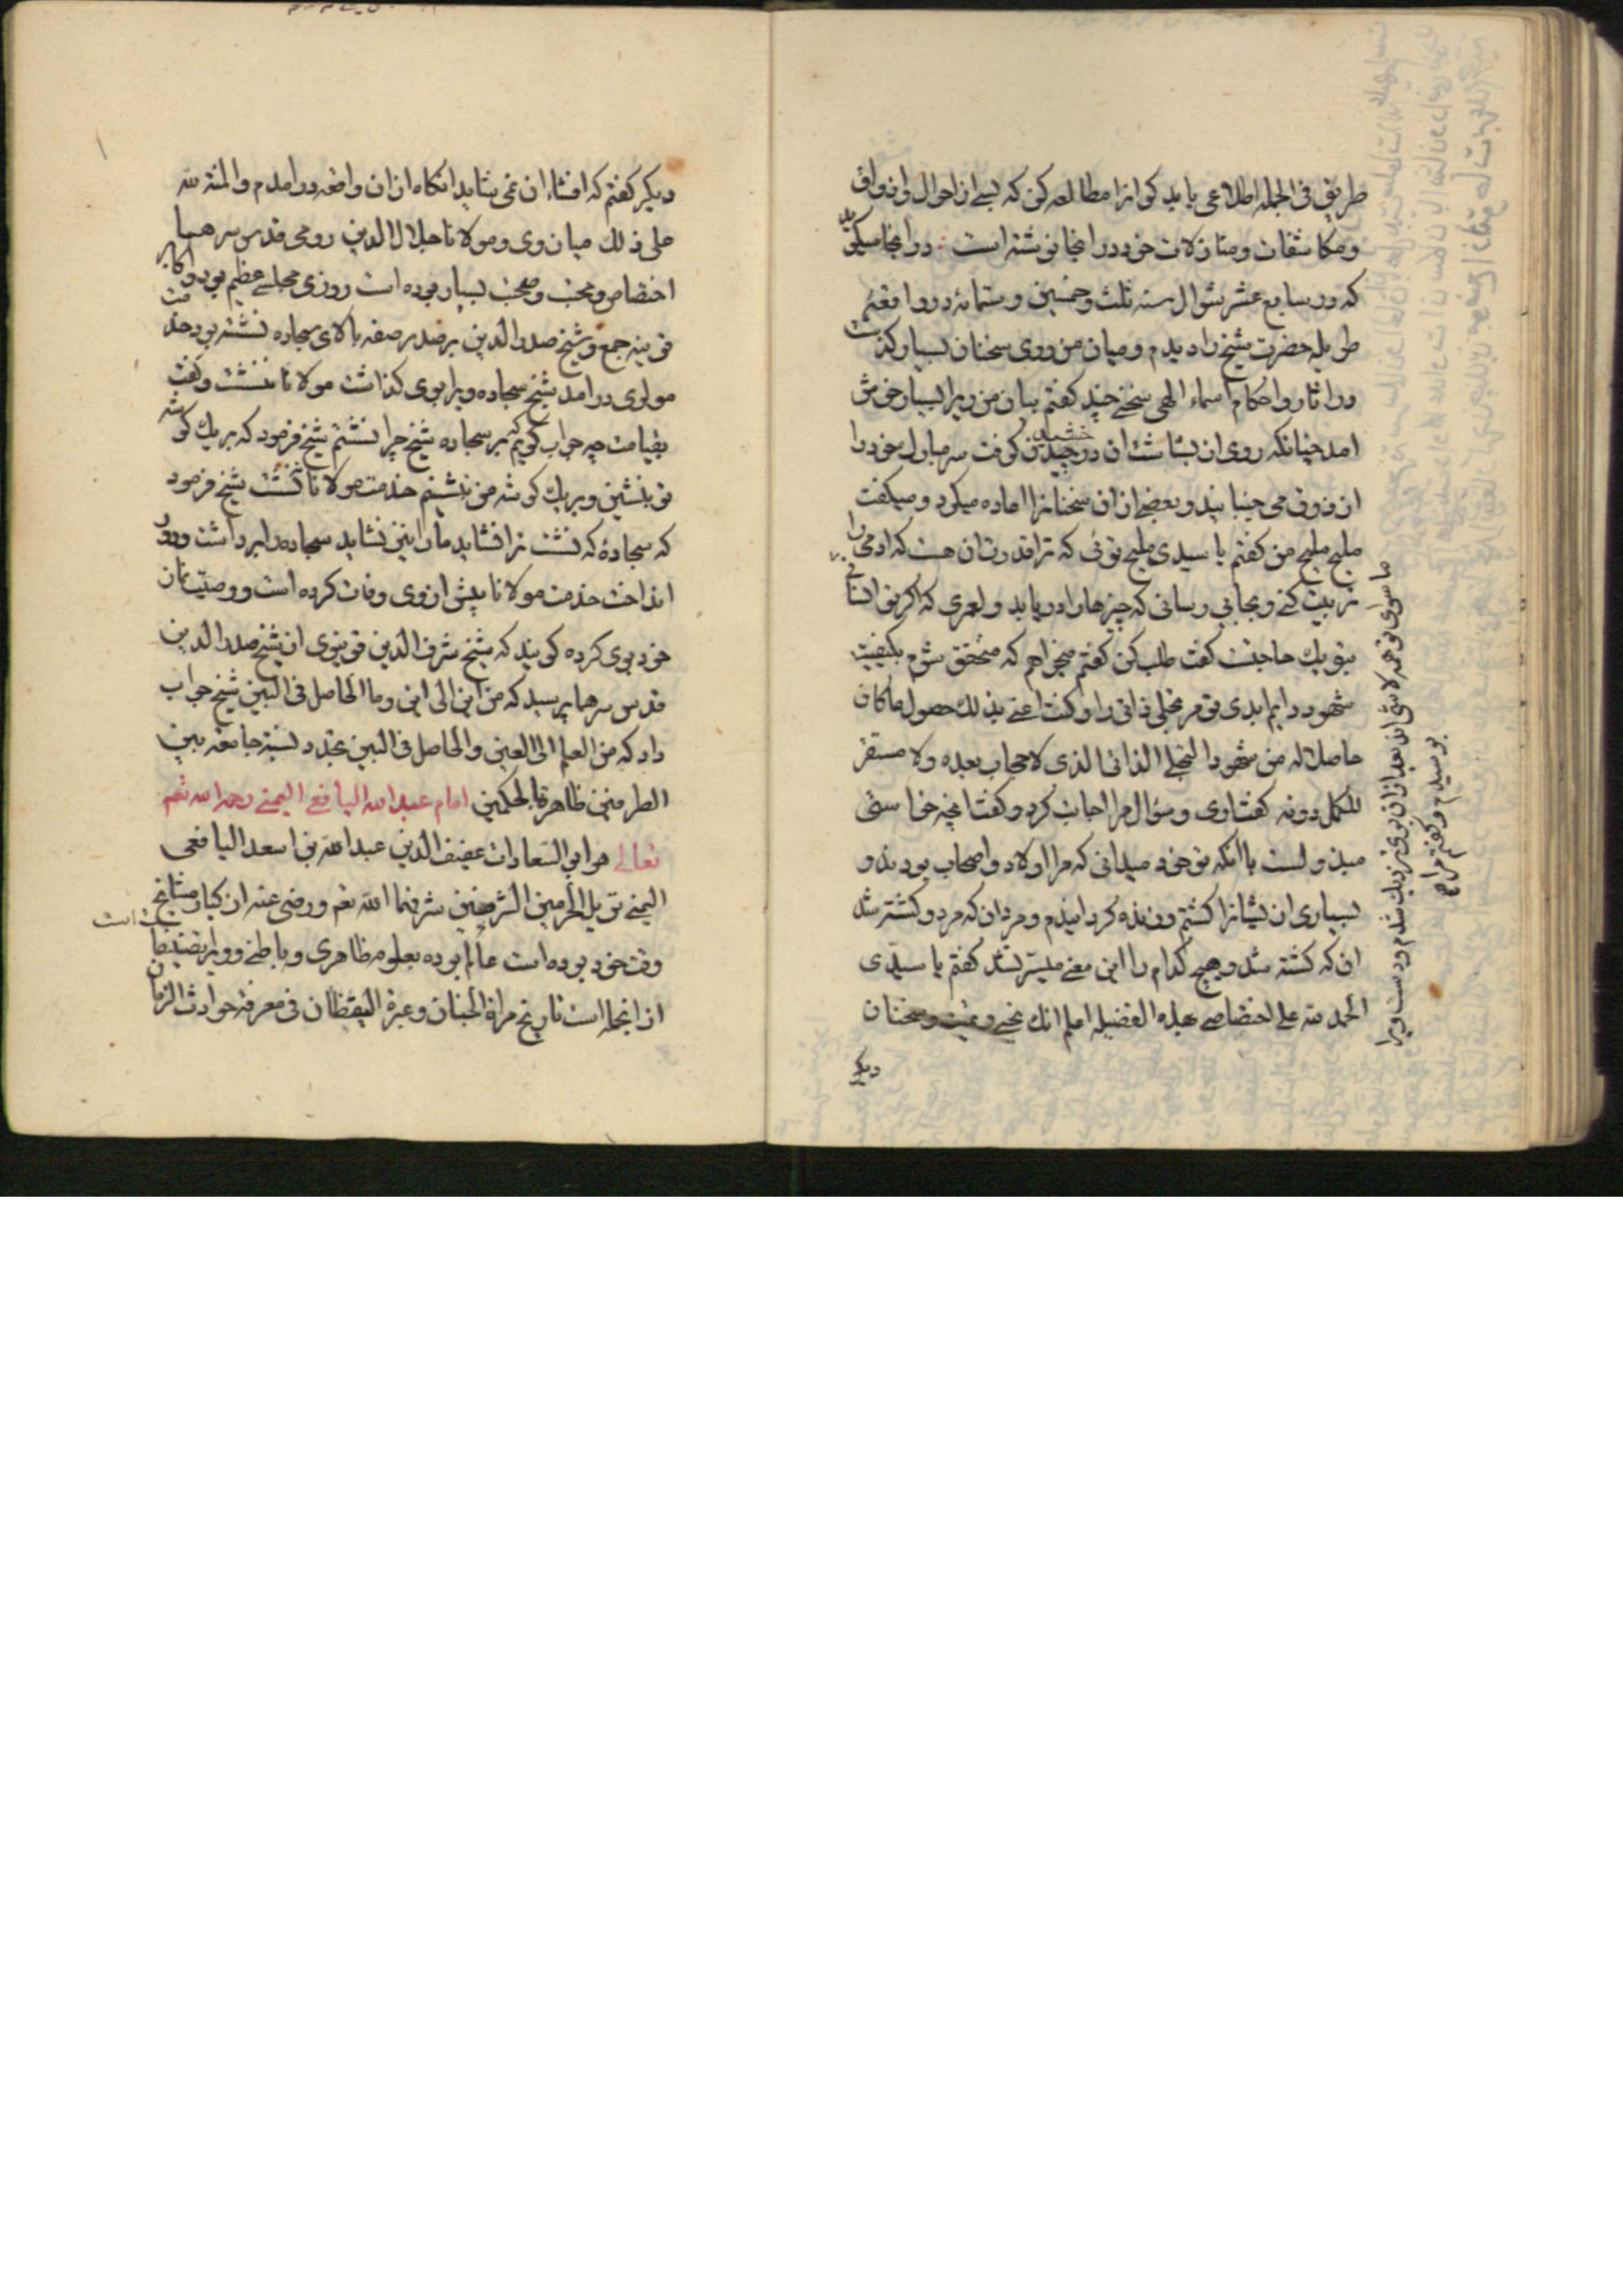 طریق فی الجمله اطلاعی یابد کو انرا مطالعه کن که بسی از احوال و اذواق
و مکاشفات و منازلات خود در انجا نوشته است در انجا میکوید
که در سابع عشر شوال سنه ثلث و خمسین و ستمائه در واقعۀ
طویله حضرت شیخ را دیدم و میان من و وی سخنان بسیار کذشت
در اثار و احکام اسماء الهی سخنی چند کفتم بیان من ویرا بسیار خوش
امد چنانکه روی ان بشاشت ان درخشیدن کرفت سر مبارک خود را
از ذوق می جنبانید و بعضی از ان سخنانرا اعاده میکرد و میکفت
ملیح ملیح من کفتم یا سیدی ملیح توئی که ترا قدرت ان هست که ادمی را
تربیت کنی و بجایی رسانی که چیزها را دریابد و لعمری که اکر تو انسانی
ما سوای تو همه لا شی اند بعد ازان بوی نزدیک شدم و دست ویرا
بوسیدم و کفتم مرا
بتو یک حاجت کفت طلب کن کفتم میخواهم که متحقق شوم بکیفیت
شهود دایم ابدی تو مر تجلی ذاتی را و کنت اعنی بذلک حصول ما کان
حاصلا له من شهود التجلی الذاتی الذی لا حجاب بعده و لا مستقر
للکمل دونه کفت اری و سؤال مرا اجابت کرد و کفت انچه خواستی
مبذولست با انکه تو خود میدانی که مرا اولاد و اصحاب بودند و
بسیاری از یشانرا کشتم و زنده کردانیدم و مرد ان که مرد و کشته شد
ان که کشته شد و هیچ کدام را این معنی میسر نشد کفتم یا سیدی
الحمد لله علی اختصاصی بهذه الفضیله اعلم انک تحیی و تمیت و سخنان
دیکر
دیکر کفتم که افشاء ان نمی شاید انکاه از ان واقعه درامدم و المنة لله
علی ذلک میان وی و مولانا جلال الدین رومی قدس سرهما
اختصاص و محبت و صحبت بسیار بوده است روزی مجلسی عظیم بود و اکابر
قونیه جمع و شیخ صدر الدین بر صدر صفه بالای سجاده نشسته بود خدمت
مولوی درامد شیخ سجاده ویرا بوی کذاشت مولانا ننشست و کفت
بقیامت چه جواب کویم که بر سجاده شیخ چرا نشستم شیخ فرمود که بر یک کوشه
تو بنشین و بر یک کوشه من بنشینم خدمت مولانا ننشست شیخ فرمود
که سجادۀ که نشست ترا نشاید ما را نیز نشاید سجاده را برداشت و دور
انداخت خدمت مولانا پیش از وی وفات کرده است و وصیت نماز
خود بوی کرده کویند که شیخ شرف الدین قونیوی از شیخ صدر الدین
قدس سرهما پرسید که من این الی این و ما الحاصل فی البین شیخ جواب
داد که من العلم الی العین و الحاصل فی البین تجدد نسبة جامعة بین
الطرفین ظاهرة بالحکمین امام عبد الله الیافعی الیمنی رحمه الله تعم
تعالی هو ابو السعادات عفیف الدین عبد الله بن اسعد الیافعی
الیمنی نزیل الحرمین الشریفین شرفهما الله تعم و رضی عنه از کبار مشایخ
وقت خود بوده است عالم بوده بعلوم ظاهری و باطنی و ویرا تصنیفهاست
از انجمله است تاریخ مراة الجنان و عبرة الیقظان فی معرفة حوادث الزمان